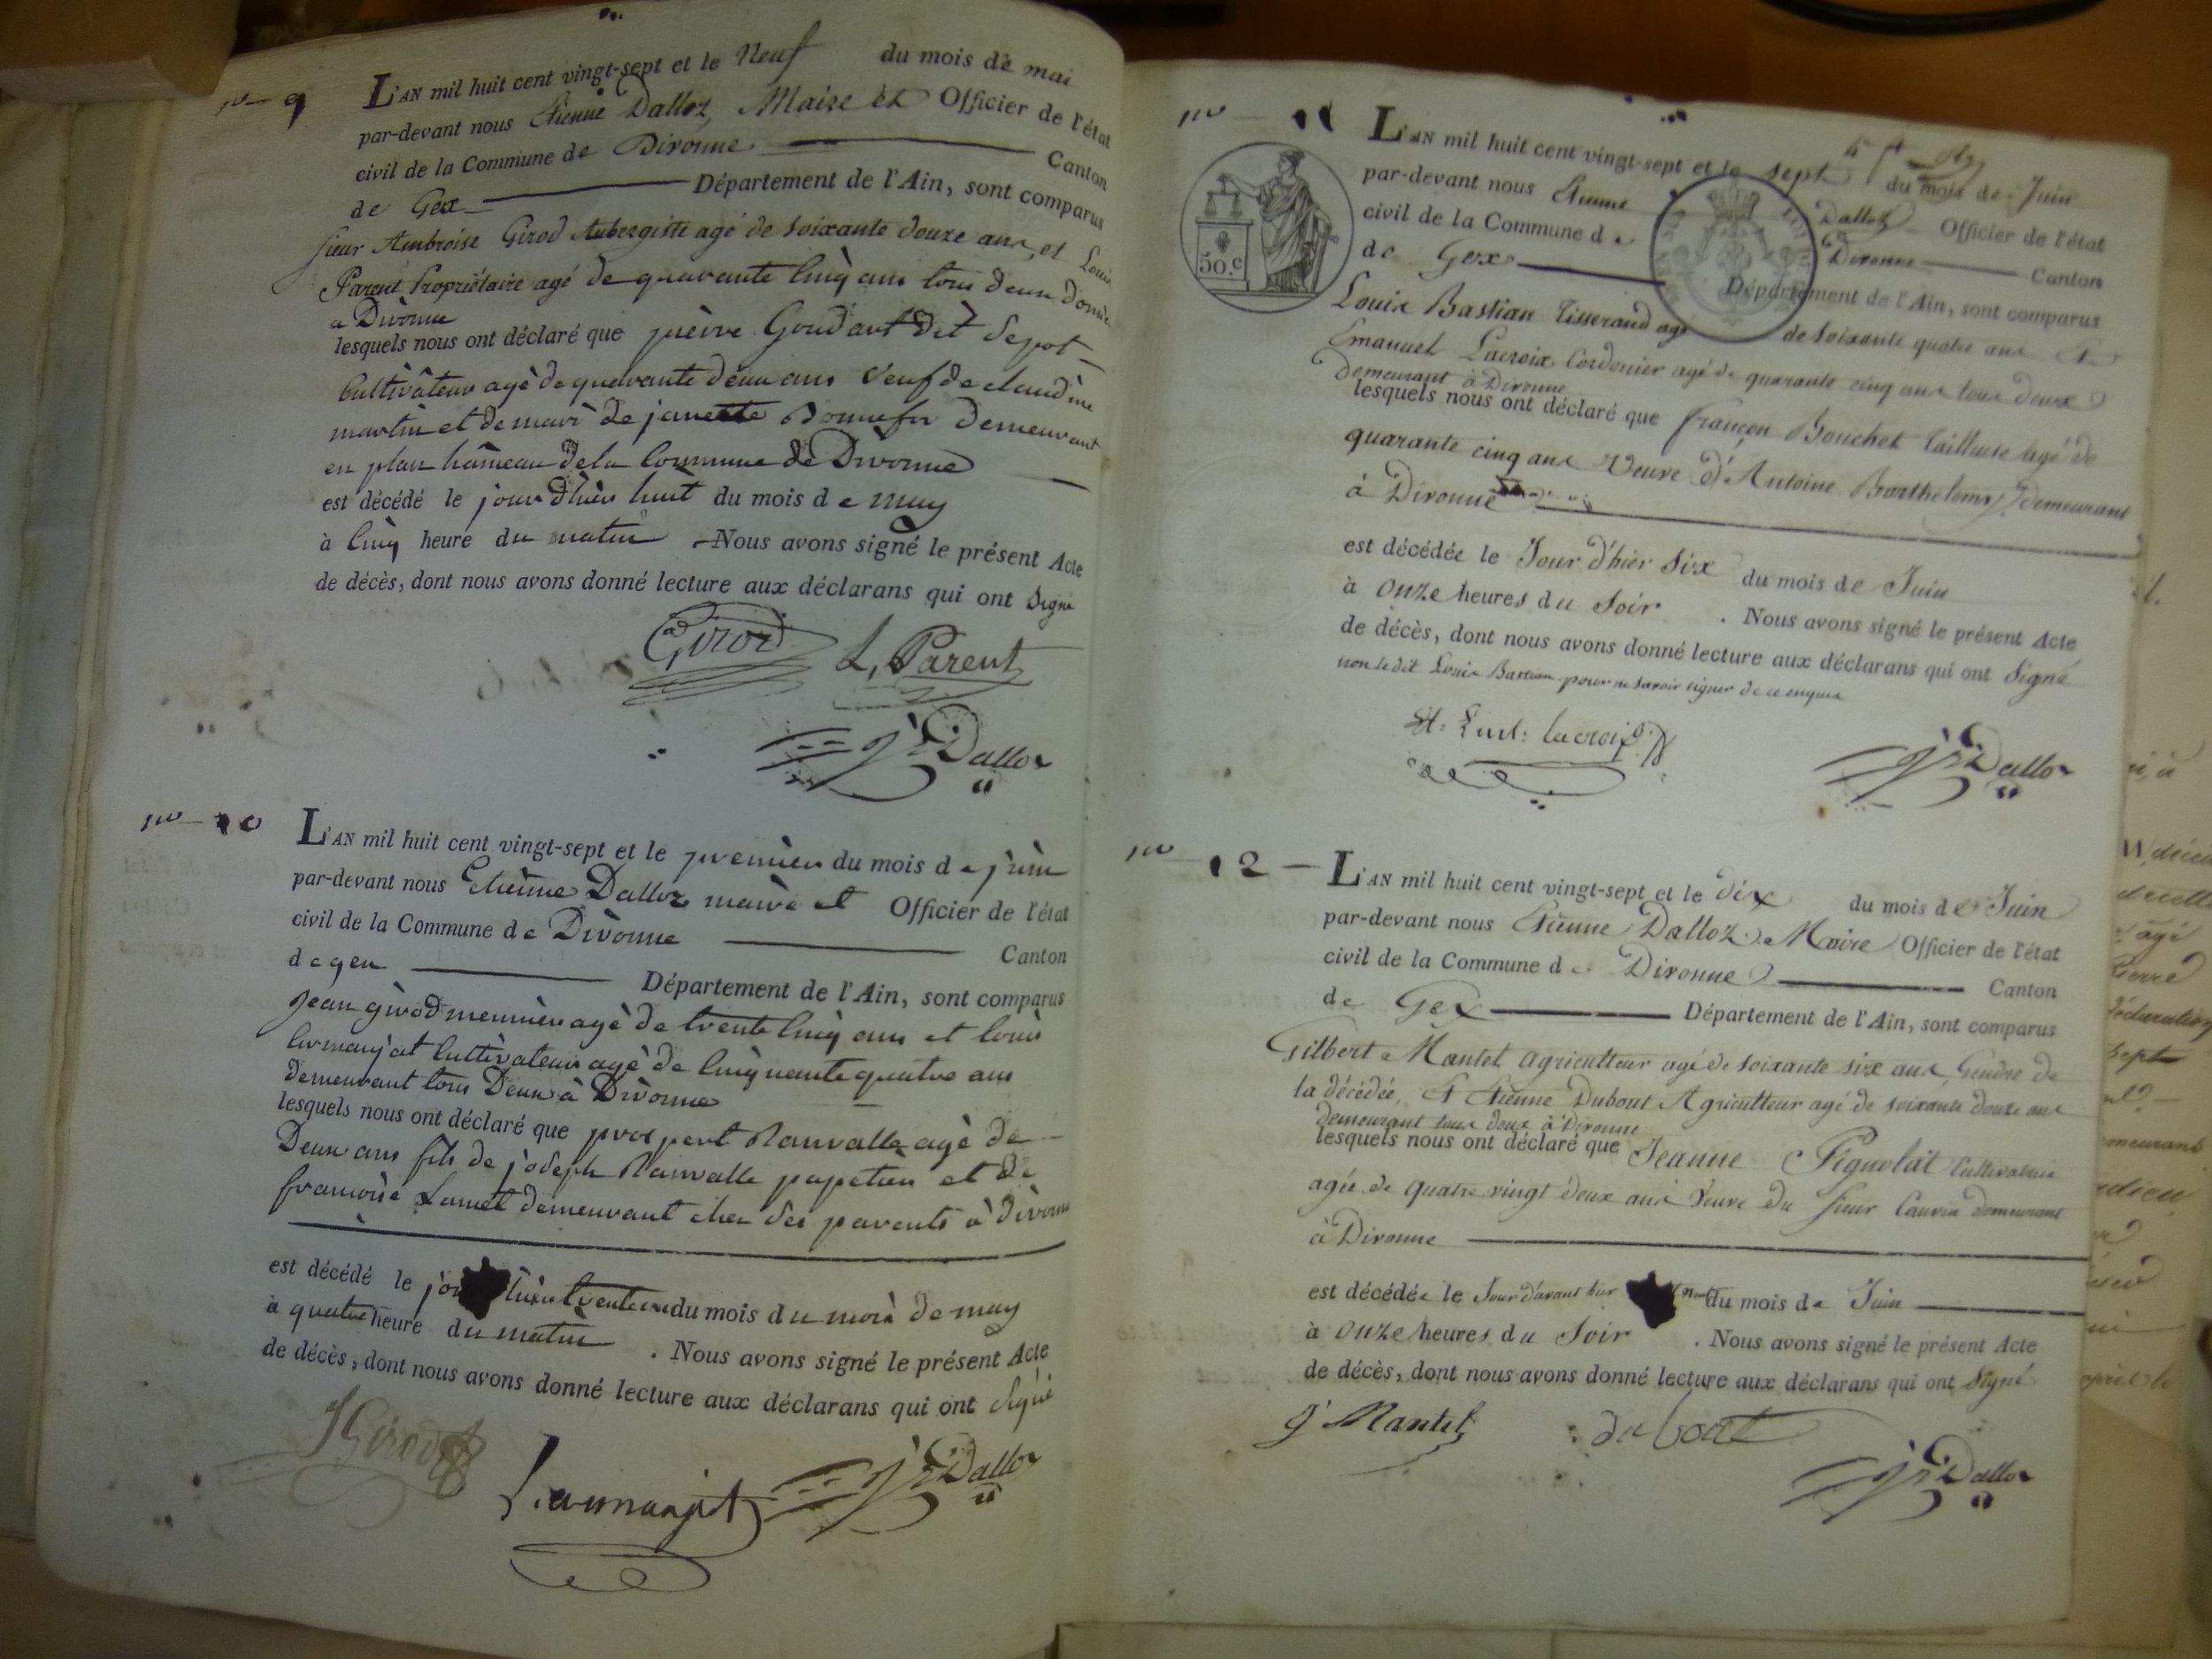 no 9
L'AN mil huit cent vingt-sept et le Neuf du mois de mai
par-devant nous Etienne Dalloz Maire et Officier de l'état
civil de la Commune de Divonne Canton
de Gex Département de l'Ain, sont comparus
Sieur Ambroise Girod Aubergiste agé de soixante douze ans, et Louis
Parent Propriétaire agé de quarante cinq ans tous deux
a Divonne
lesquels nous ont déclaré que pierre Goudart dit
Cultivateur agé de quarante deux ans veuf de claudine
martin et de mari de janette demeurant
en plan hâmeau de la Commune de Divonne
est décédé le jour d'hier huit du mois de may
à cinq heure du matin Nous avons signé le présent Acte
de décès, dont nous avons donné lecture aux déclarans qui ont signé
Girod L. Parent
Dalloz
no 10
L'AN mil huit cent vingt-sept et le premier du mois de juin
par-devant nous Etienne Dalloz maire et Officier de l'état
civil de la Commune de Divonne Canton
de gex Département de l'Ain, sont comparus
Jean girod meunier agé de trente cinq ans et louis
Cultivateur agé de cinquante quatre ans
demeurant tous Deux à Divonne
lesquels nous ont déclaré que prospert Ranvalle agé de
Deux ans fils de joseph Ranvalle papetier et de
francoise Lamet demeurant chez ses parents à divonne
est décédé le du mois du mois de may
à quatre heure du matin . Nous avons signé le présent Acte
de décès, dont nous avons donné lecture aux déclarans qui ont signé
J Girod
Dalloz
no 11
50.c
L'AN mil huit cent vingt-sept et le sept du mois de Juin
par-devant nous Etienne Dalloz Officier de l'état
civil de la Commune de Divonne Canton
de Gex Département de l'Ain, sont comparus
Louis Bastian Tisserand agé de soixante quatre ans Et
Emanuel Lacroix Cordonier agé de quarante cinq ans tous deux
Demeurant à Divonne
lesquels nous ont déclaré que françon Bouchet tailleuse agé de
quarante cinq ans Veuve d'Antoine Barthelemy demeurant
à Divonne
est décédée le Jour d'hier six du mois de Juin
à onze heures du Soir . Nous avons signé le présent Acte
de décès, dont nous avons donné lecture aux déclarans qui ont Signé
non ledit Louis Bastian pour ne savoir signer de ce enquis
lacroix
Dalloz
no 12
L'AN mil huit cent vingt-sept et le dix du mois de Juin
par-devant nous Etienne Dalloz Maire Officier de l'état
civil de la Commune de Divonne Canton
de Gex Département de l'Ain, sont comparus
Gilbert Mantel Agriculteur agé de soixante six ans, Gendre de
la décédée, Et Etienne Dubout Agriculteur agé de soixante douze ans
demeurant tous deux à Divonne
lesquels nous ont déclaré que Jeanne Pignolat Cultivatrice
agée de quatre vingt deux ans Veuve du Sieur demeurant
à Divonne
est décédée le Jour d'avant hier du mois de Juin
à onze heures du Soir . Nous avons signé le présent Acte
de décès, dont nous avons donné lecture aux déclarans qui ont Signé
g Mantel dubout
Dalloz